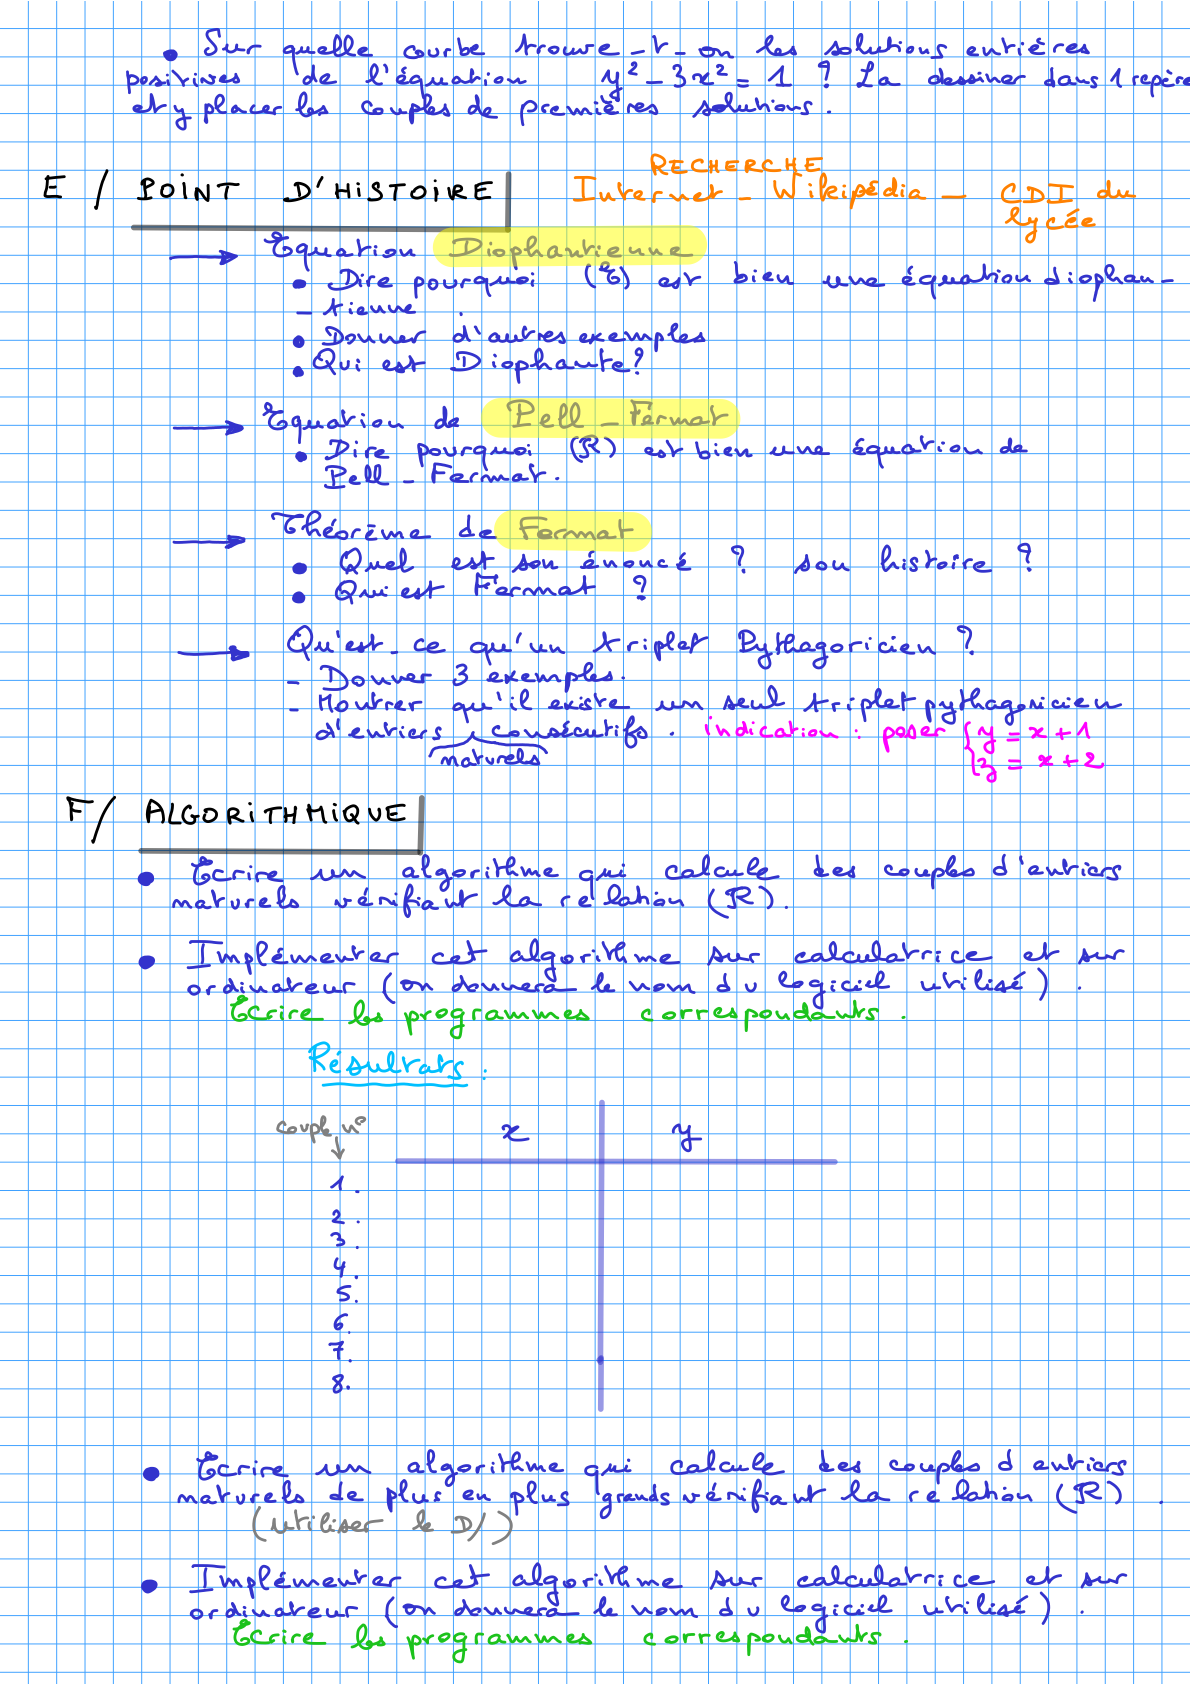 • Sur quelle courbe trouve-t-on les solutions entières
positives de l'équation y² - 3x² = 1 ? La dessiner dans 1 repère
et y placer les couples de premières solutions.
RECHERCHE
E / POINT D'HISTOIRE Internet - Wikipédia - CDI du
lycée
→ Equation Diophantienne
• Dire pourquoi (E) est bien une équation diophan-
-tienne.
• Donner d'autres exemples
• Qui est Diophante?
→ Equation de Pell-Fermat
• Dire pourquoi (R) est bien une équation de
Pell-Fermat.
→ Théorème de Fermat
• Quel est son énoncé ? son histoire ?
• Qui est Fermat ?
→ Qu'est-ce qu'un triplet Pythagoricien ?
- Donner 3 exemples.
- Montrer qu'il existe un seul triplet pythagoricien
d'entiers consécutifs. indication : poser { y = x+1
naturels z = x+2
F/ ALGORITHMIQUE
• Ecrire un algorithme qui calcule des couples d'entiers
naturels vérifiant la relation (R).
• Implémenter cet algorithme sur calculatrice et sur
ordinateur (on donnera le nom du logiciel utilisé).
Ecrire les programmes correspondants.
Résultats :
couple n° x y
1.
2.
3.
4.
5.
6.
7.
8.
• Ecrire un algorithme qui calcule des couples d entiers
naturels de plus en plus grands vérifiant la relation (R).
(utiliser le D/)
• Implémenter cet algorithme sur calculatrice et sur
ordinateur (on donnera le nom du logiciel utilisé).
Ecrire les programmes correspondants.